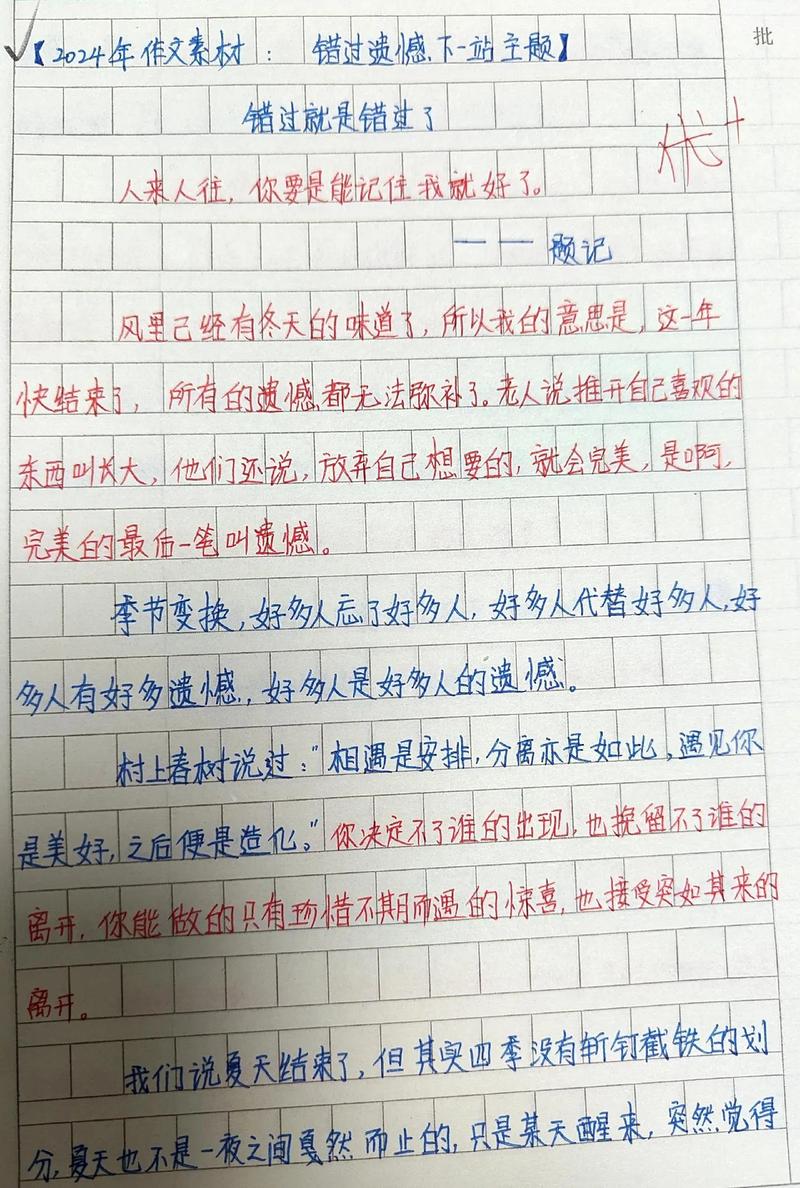 批
【2024年作文素材： 错过遗憾.下一站主题】
错过就是错过了
优+
人来人往，你要是能记住我就好了。
——题记
风里已经有冬天的味道了，所以我的意思是，这一年
快结来了，所有的遗憾都无法弥补了。老人说推开自己喜欢的
东西叫长大，他们还说，放弃自己想要的，就会完美，是啊，
完美的最后一笔叫遗憾。
季节变换，好多人忘了好多人，好多人代替好多人，好
多人有好多遗憾，好多人是好多人的遗憾。
村上春树说过：“相遇是安排，分离亦是如此，遇见你
是美好，之后便是造化。”你决定不了谁的出现，也挽留不了谁的
离开，你能做的只有珍惜不期而遇的惊喜，也接受突如其来的
离开。
我们说夏天结束了，但其实四季没有斩钉截铁的划
分，夏天也不是一夜之间戛然而止的，只是某天醒来，突然觉得